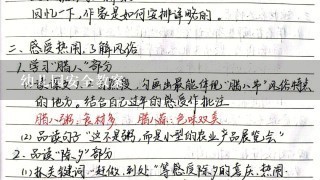 回忆一下,作家是如何安排详略的。
二、感受热闹,了解风俗
1.学习"腊八"部分
勾画出最能体现"腊八节"风俗特点
的地方。结合自己过年的感受作批注
腊八粥:食材多 腊八蒜:色味双美
(2)品读句子"这不是粥,而是小型的农业产品展览会"
2.品读"除夕"部分
(1)抓关键词"赶做、到处"等感受除夕的喜庆、热闹。